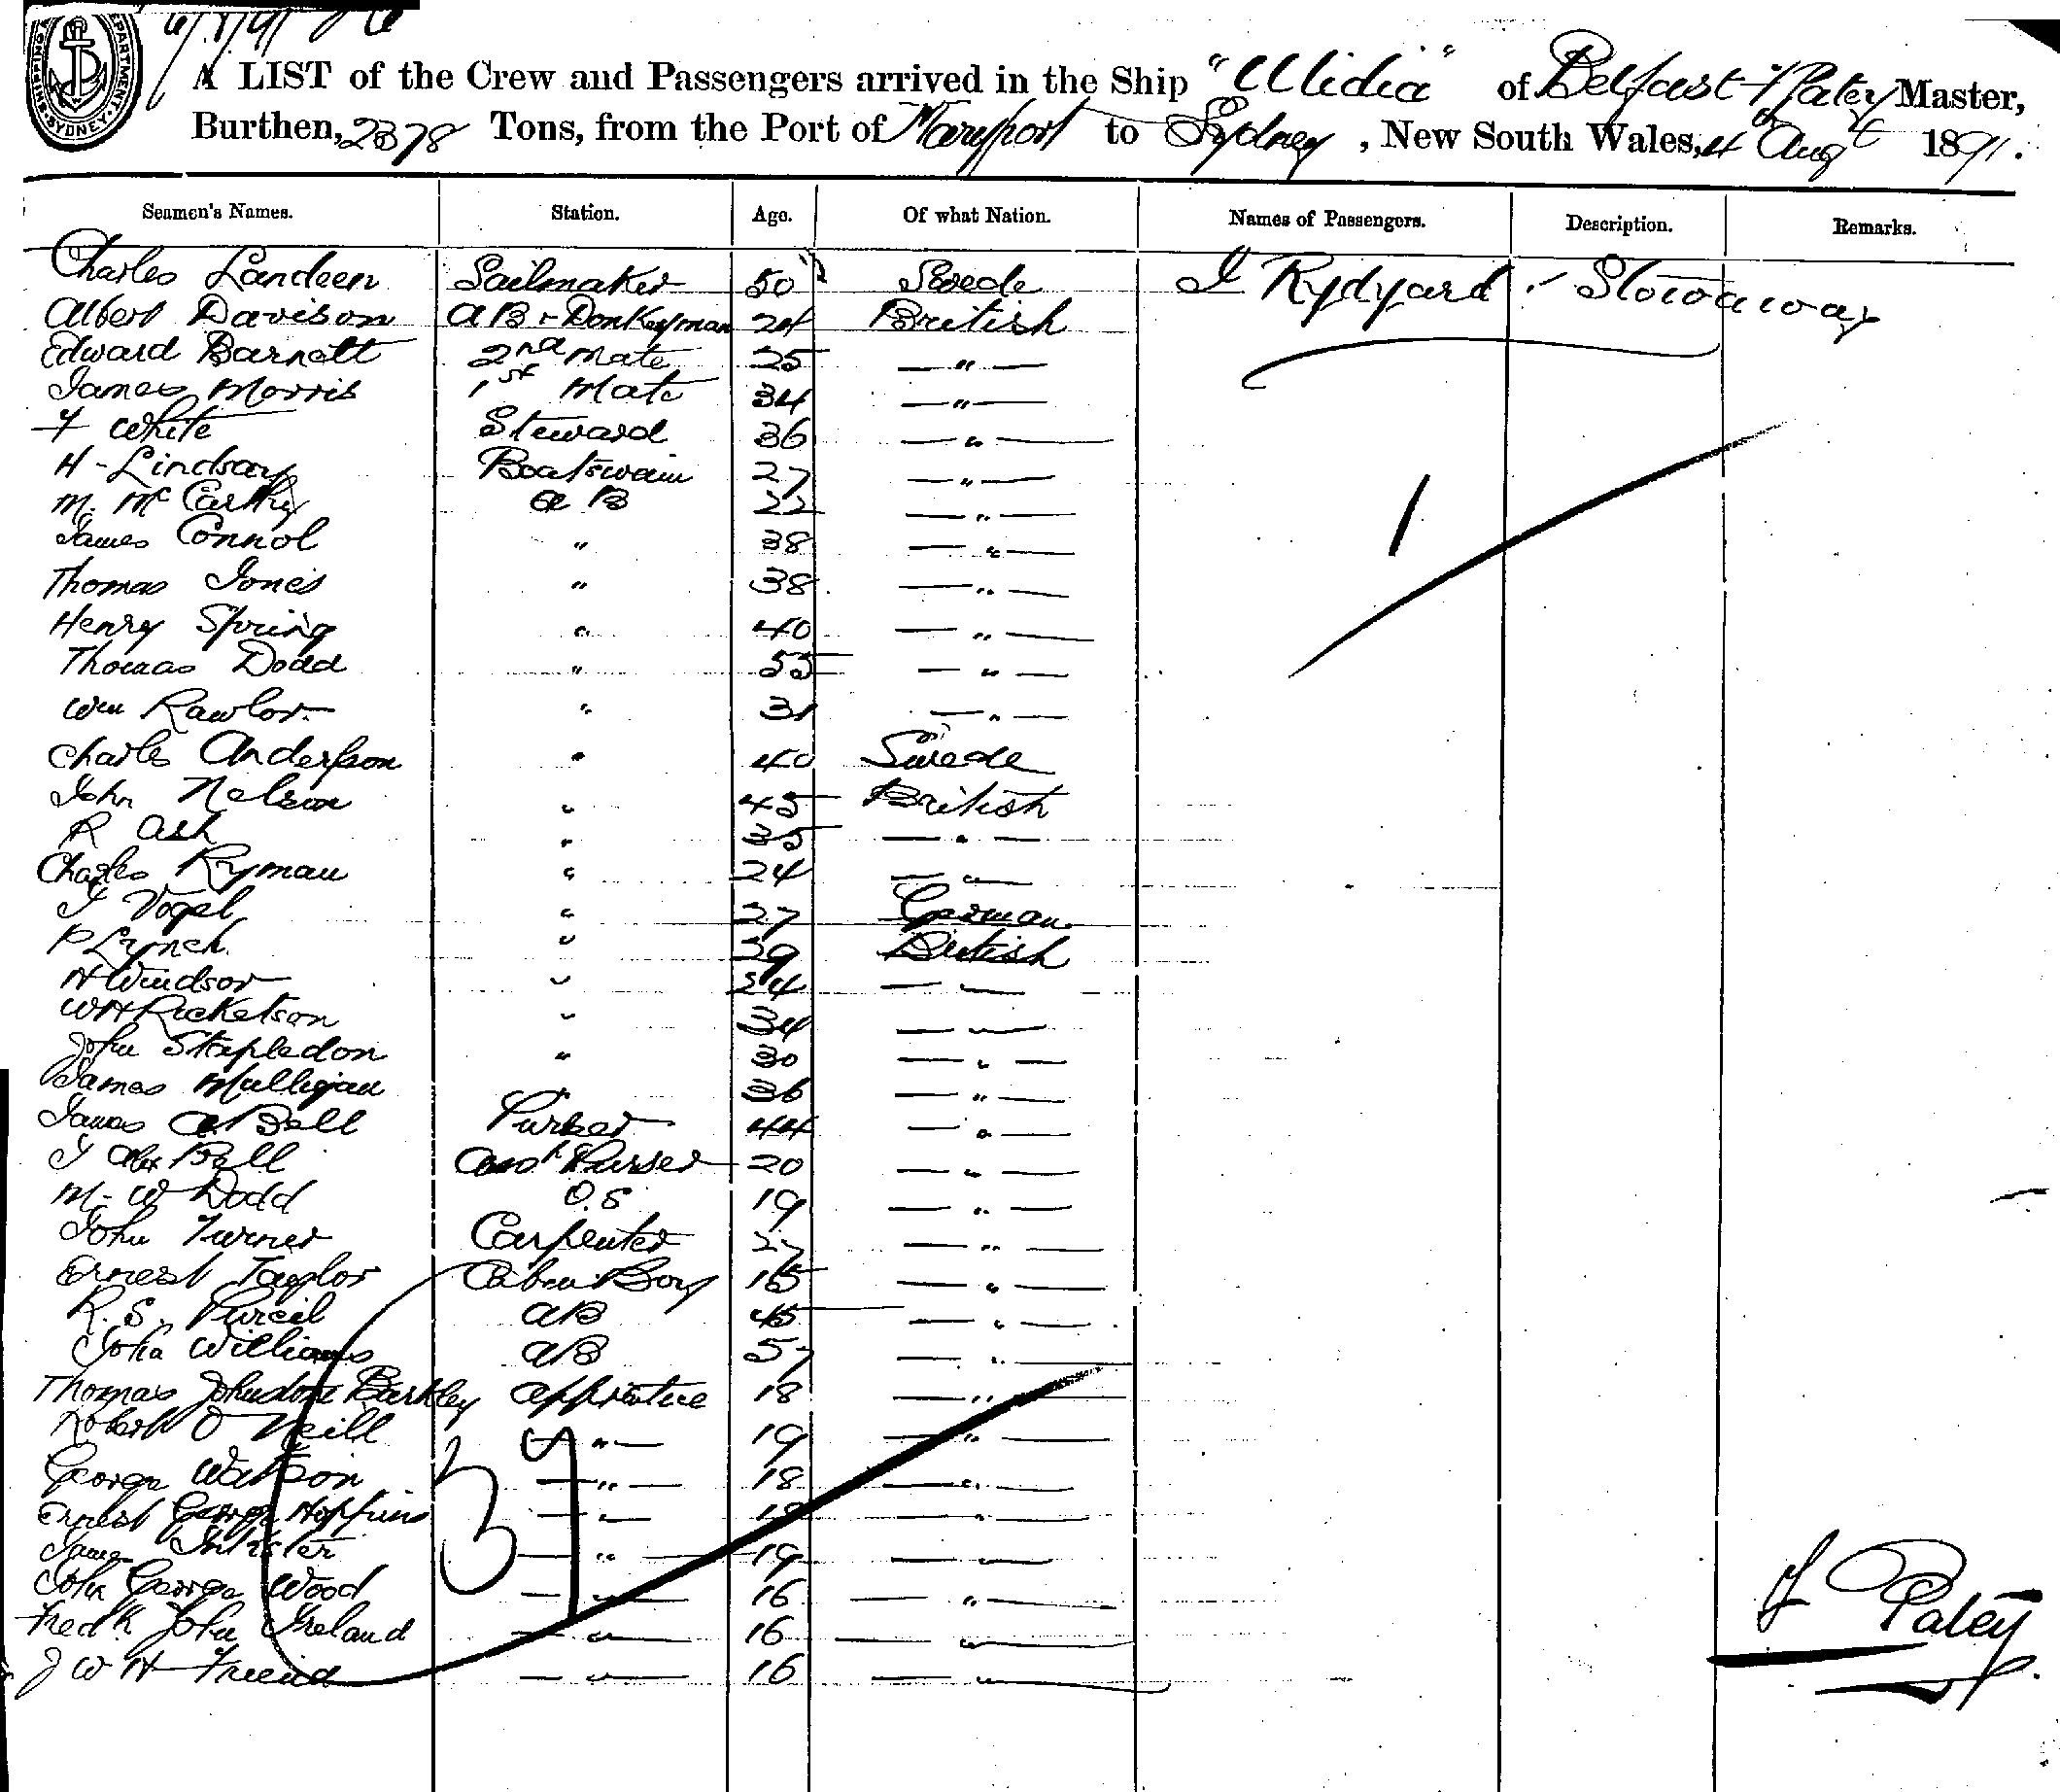 SHIPPING DEPARTMENT SYDNEY
A LIST of the Crew and Passengers arrived in the Ship "Ulidia" of Belfast, Patey Master,
Burthen, 2378 Tons, from the Port of Maryport to Sydney, New South Wales, 4 Augt 1891.
Seamen's Names. Station. Age. Of what Nation. Names of Passengers. Description. Remarks.
Charles Landeen Sailmaker 50 Swede I Rydyard - Stowaway
Albert Davison AB & Donkeyman 24 British
Edward Barnett 2nd Mate 25 — " —
James Morris 1st Mate 34 — " —
F White Steward 36 — " —
H - Lindsay Boatswain 27 — " —
M. McCarthy AB 22 — " —
James Connol " 38 — " — 1
Thomas Jones " 38 — " —
Henry Spring " 40 — " —
Thomas Dodd " 53 — " —
Wm Rawlor " 31 — " —
Charles Anderson " 40 Swede
John Nelson " 45 British
R Ash " 35 — " —
Charles Ryman " 24 — " —
J Vogel " 27 German
P Lynch " 39 British
H Windsor " 24 — " —
WH Ricketson " 34 — " —
John Stapledon " 30 — " —
James Mulligan " 36 — " —
James A Bell Purser 44 — " —
J Alex Bell Asst Purser 20 — " —
M. W Dodd O.S 19 — " —
John Turner Carpenter 27 — " —
Ernest Taylor Cabin Boy 15 — " —
R. S. Purcil AB 45 — " —
John Williams AB 57 — " —
Thomas Johnstone Barkley Apprentice 18 — " —
Robert O Neill — " — 19 "
George Watson — " — 18 — " —
Ernest George Hopkins — " — 18 — " —
James Inkster — " — 19 — " —
John George Wood — " — 16 — " —
Fredk John Ireland — " — 16 — " —
J W H Friend — " — 16 — " —
39
J Patey